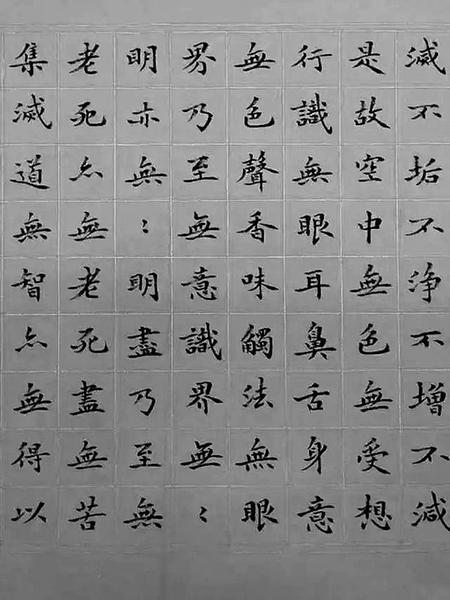 滅不垢不淨不增不減
是故空中無色無受想
行識無眼耳鼻舌身意
無色聲香味觸法無眼
界乃至無意識界無〻
明亦無〻明盡乃至無
老死亦無老死盡無苦
集滅道無智亦無得以